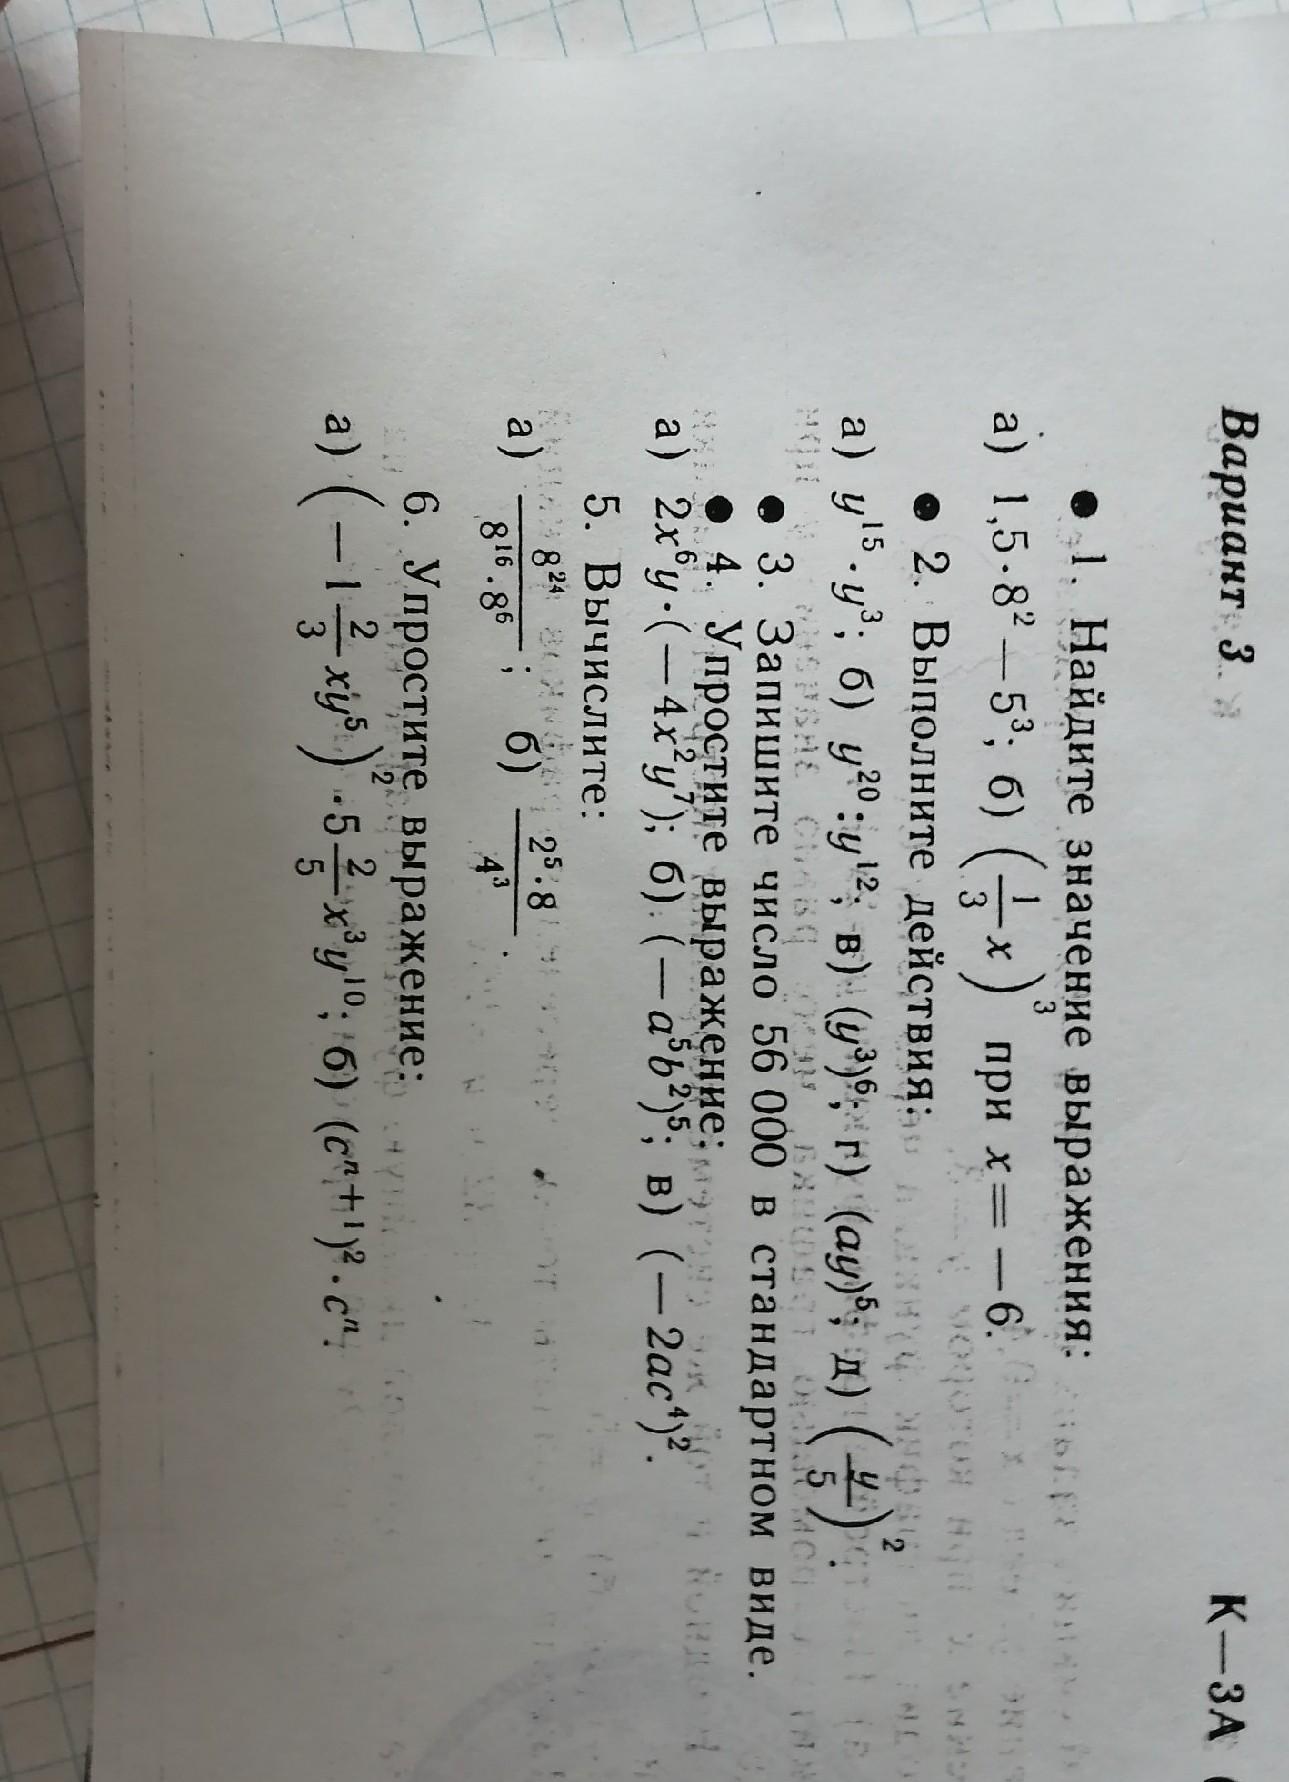 Вариант 3 К—3А
● 1. Найдите значение выражения:
а) 1,5·8² — 5³; б) (1/3 x)³ при x = —6.
● 2. Выполните действия:
а) y¹⁵·y³; б) y²⁰:y¹²; в) (y³)⁶; г) (ay)⁵; д) (y/5)².
● 3. Запишите число 56 000 в стандартном виде.
● 4. Упростите выражение:
а) 2x⁶y·(—4x²y⁷); б) (—a⁵b²)⁵; в) (—2ac⁴)².
5. Вычислите:
а) 8²⁴/(8¹⁶·8⁶); б) (2⁵·8)/4³.
6. Упростите выражение:
а) (—1 2/3 xy⁵)²·5 2/5 x³y¹⁰; б) (cⁿ⁺¹)²·cⁿ.